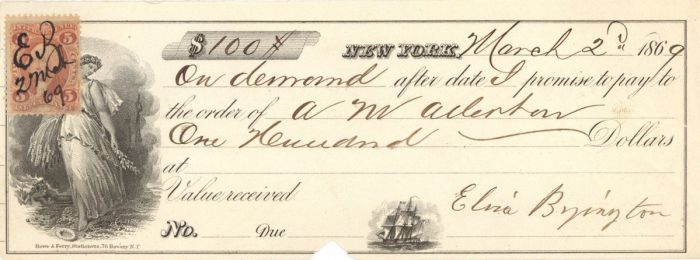 $100 NEW YORK, March 2d 1869
On demand after date I promise to pay to
the order of A M Allerton
One Hundred Dollars
at
Value received
Eliza Byington
No. Due
Howe & Ferry, Stationers, 76 Bowery N.Y.
5 5
EB
2 Mch
69
5 5